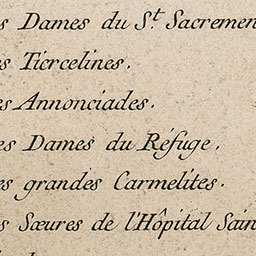 s Dames du St Sacremen
s Tiercelines.
es Annonciades.
es Dames du Réfuge.
es grandes Carmelites.
s Sœures de l'Hôpital Sain